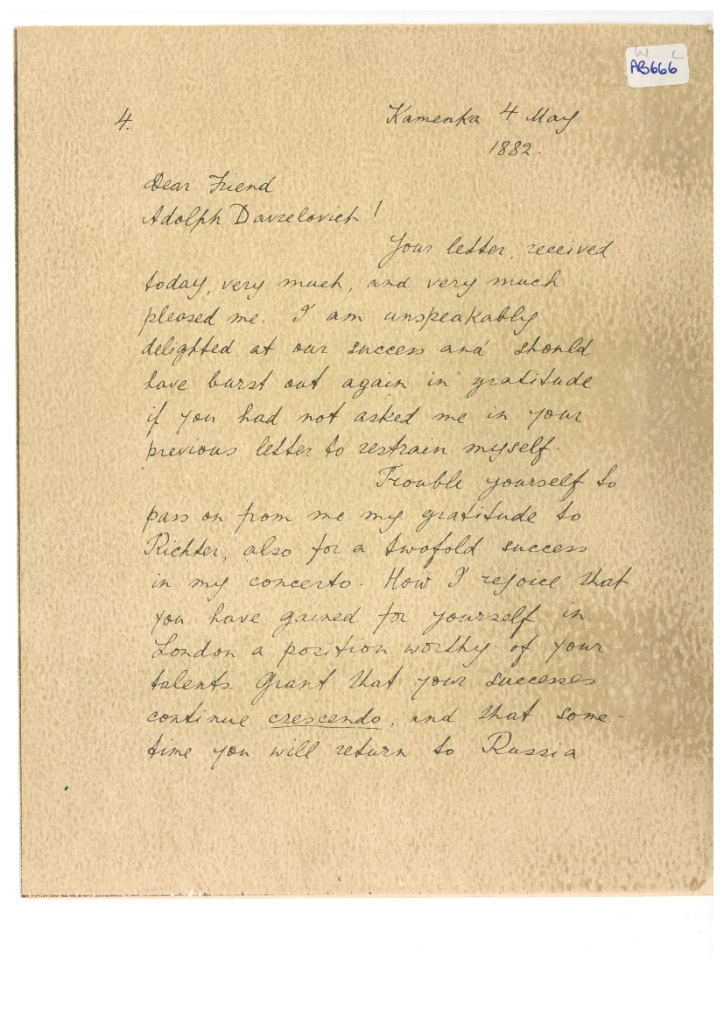 W L
AB666
4.
Kamenka 4 May
1882.
Dear Friend
Adolph Davidovich!
Your letter, received
today, very much, and very much
pleased me. I am unspeakably
delighted at our success and should
have burst out again in gratitude
if you had not asked me in your
previous letter to restrain myself.
Trouble yourself to
pass on from me my gratitude to
Richter, also for a twofold success
in my concerto. How I rejoice that
you have gained for yourself in
London a position worthy of your
talents. Grant that your successes
continue crescendo, and that some-
time you will return to Russia